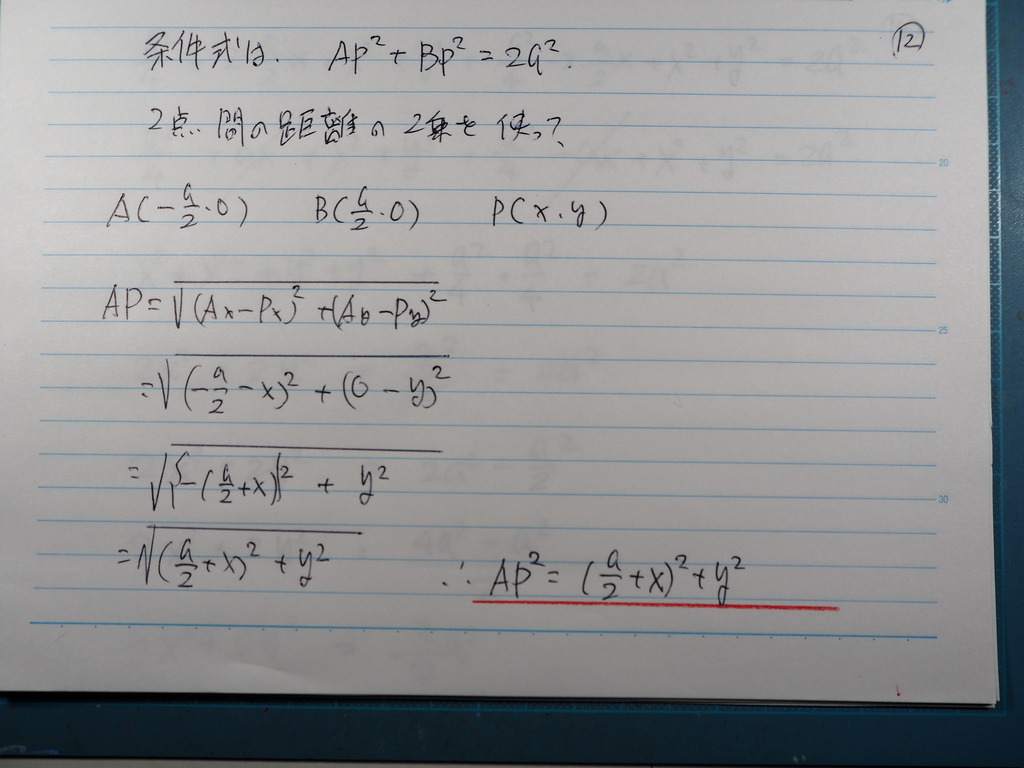 ⑫
条件式は、 AP² + BP² = 2a².
2点間の距離の2乗を使って?
A(-a/2・0) B(a/2・0) P(x・y)
AP = √(Ax-Px)² + (Ay-Py)²
= √(-a/2 - x)² + (0 - y)²
= √{-(a/2 + x)}² + y²
= √(a/2 + x)² + y² ∴ AP² = (a/2 + x)² + y²
20
25
30